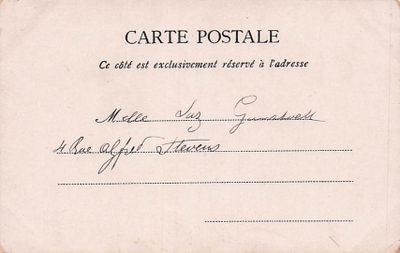 CARTE POSTALE
Ce côté est exclusivement réservé à l'adresse
Melle Luz
4 Rue Alfred Stevens